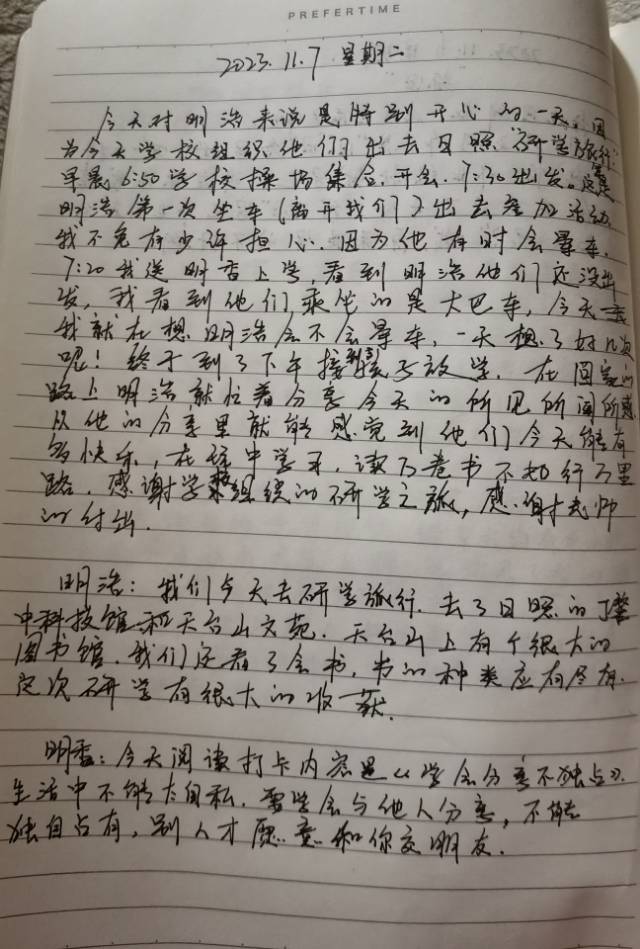 PREFERTIME
2023.11.7 星期二
今天对明浩来说是特别开心的一天。因
为今天学校组织他们出去日照"研学旅行"
早晨6:50学校操场集合.开会.7:30出发。这是
明浩第一次坐车(离开我们)出去参加活动
我不免有少许担心.因为他有时会晕车.
7:20我送明香上学,看到明浩他们还没出
发,我看到他们乘坐的是大巴车,今天一天
我就在想明浩会不会晕车,一天想了好几次
呢!终于到了下午接到孩子放学.在回家的
路上明浩就忙着分享今天的所见所闻所感
从他的分享里就能感觉到他们今天能有
多快乐,在行中学习.读万卷书不如行万里
路.感谢学校组织的研学之旅,感谢老师
的付出.
明浩:我们今天去研学旅行.去了日照的丁肇
中科技馆和天台山文苑.天台山上有个很大的
图书馆.我们还看了会书.书的种类应有尽有.
这次研学有很大的收获.
明香:今天阅读打卡内容是《学会分享不独占》.
生活中不能太自私.要学会与他人分享,不能
独自占有,别人才愿意和你交朋友.